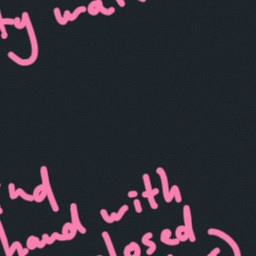 ty wa
ind
hand with
losed